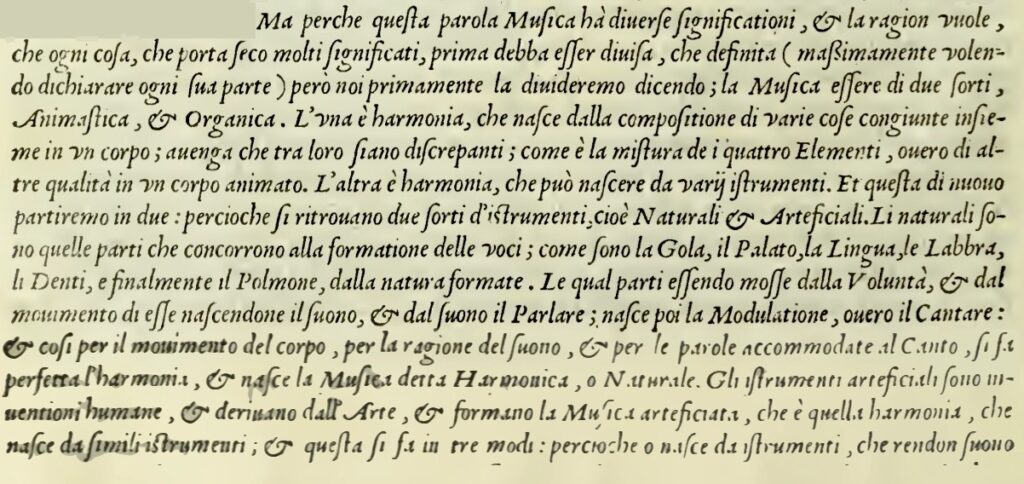 Ma perche queſta parola Muſica hà diuerſe ſignificationi, & la ragion vuole,
che ogni coſa, che porta ſeco molti ſignificati, prima debba eſſer diuiſa, che definita (maßimamente volen-
do dichiarare ogni ſua parte) però noi primamente la diuideremo dicendo; la Muſica eſſere di due ſorti,
Animaſtica, & Organica. L'vna è harmonia, che naſce dalla compoſitione di varie coſe congiunte inſie-
me in vn corpo; auenga che tra loro ſiano diſcrepanti; come è la miſtura de i quattro Elementi, ouero di al-
tre qualità in vn corpo animato. L'altra è harmonia, che può naſcere da varij iſtrumenti. Et queſta di nuouo
partiremo in due: percioche ſi ritrouano due ſorti d'iſtrumenti, cioè Naturali & Arteficiali. Li naturali ſo-
no quelle parti che concorrono alla formatione delle voci; come ſono la Gola, il Palato, la Lingua, le Labbra,
li Denti, e finalmente il Polmone, dalla natura formate. Le qual parti eſſendo moſſe dalla Voluntà, & dal
mouimento di eſſe naſcendone il ſuono, & dal ſuono il Parlare; naſce poi la Modulatione, ouero il Cantare:
& coſi per il mouimento del corpo, per la ragione del ſuono, & per le parole accommodate al Canto, ſi fa
perfetta l'harmonia, & naſce la Muſica detta Harmonica, o Naturale. Gli iſtrumenti arteficiali ſono in-
uentioni humane, & deriuano dall'Arte, & formano la Muſica arteficiata, che è quella harmonia, che
naſce da ſimili iſtrumenti; & queſta ſi fa in tre modi: percioche o naſce da iſtrumenti, che rendon ſuono